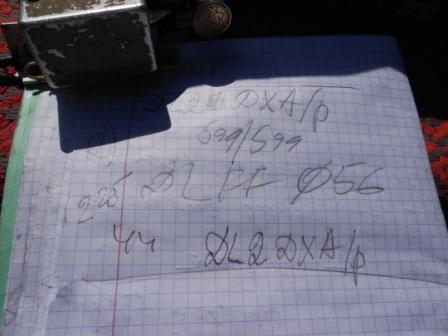 DL2DXA/p
599/599
DLFF Ø56
44 DL2DXA/p